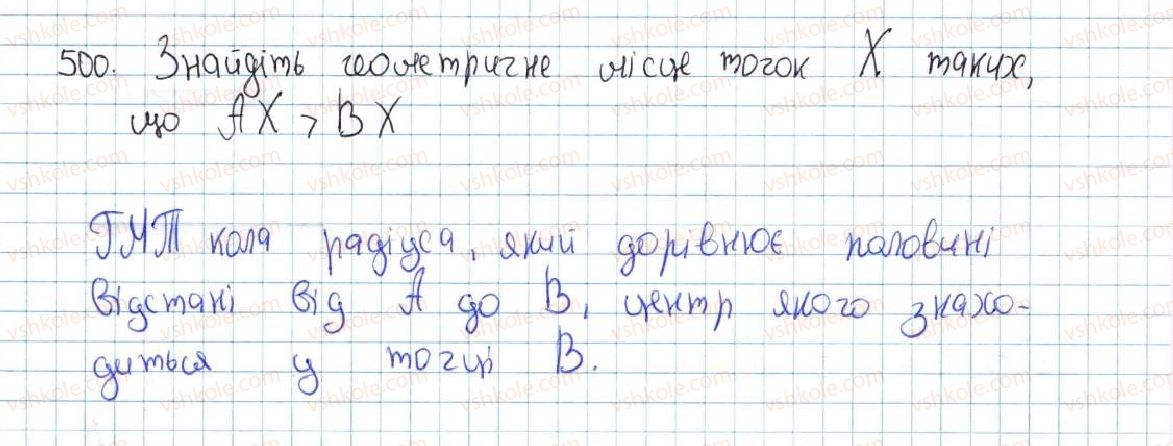 500. Знайдіть геометричне місце точок X таких,
що AX > BX
ГМТ кола радіуса, який дорівнює половині
відстані від A до B, центр якого знахо-
диться у точці B.